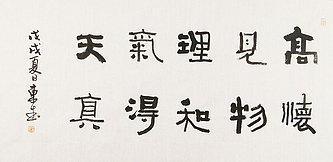 高懷
見物
理和
氣得
天真
戊戌夏日東